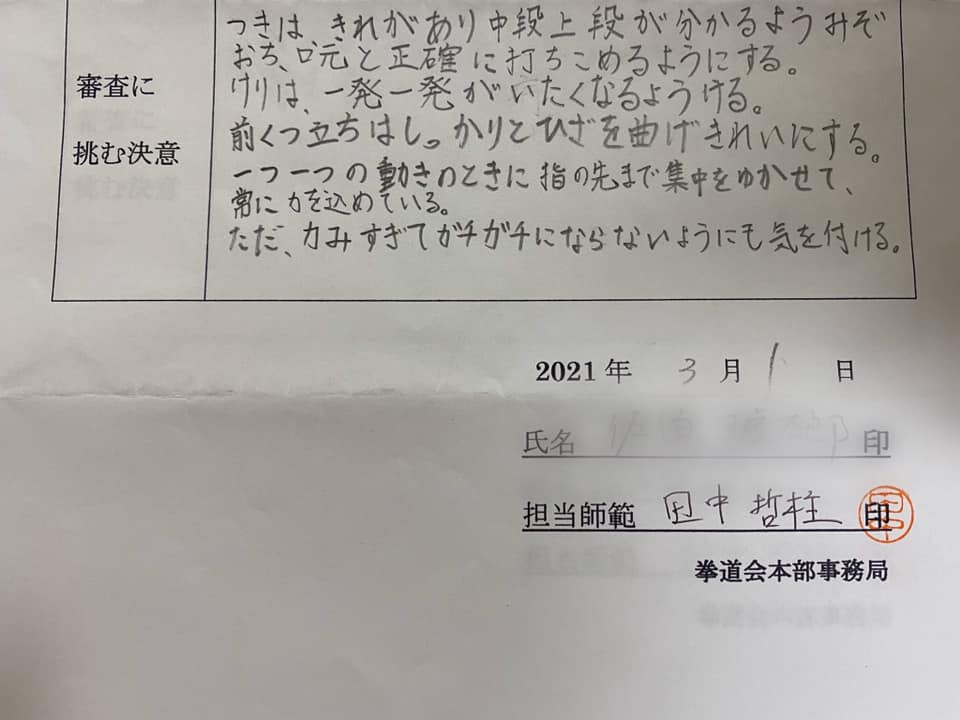 つきは、きれがあり中段上段が分かるようみぞ
おち、口元と正確に打ちこめるようにする。
けりは、一発一発がいたくなるようける。
前くつ立ちはしっかりとひざを曲げきれいにする。
一つ一つの動きのときに指の先まで集中をゆかせて、
常に力を込めている。
ただ、力みすぎてガチガチにならないようにも気を付ける。
審査に
挑む決意
2021年 3月1日
氏名 印
担当師範 田中哲柱 印
拳道会本部事務局